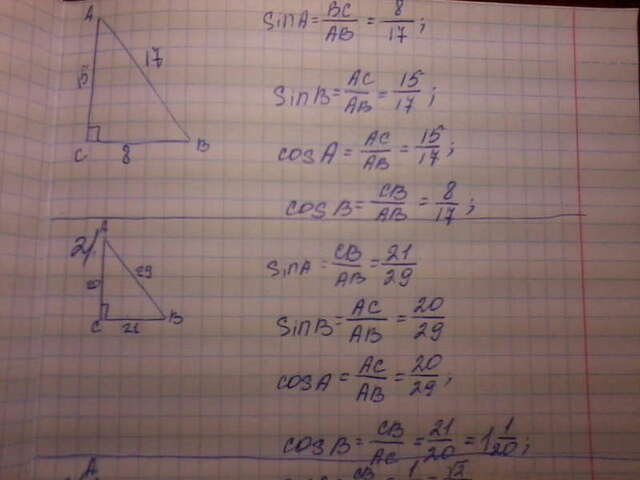 A
17
15
C
8
B
sin A = BC/AB = 8/17;
sin B = AC/AB = 15/17;
cos A = AC/AB = 15/17;
cos B = CB/AB = 8/17;
2/.
A
29
20
C
21
B
sin A = CB/AB = 21/29
sin B = AC/AB = 20/29
cos A = AC/AB = 20/29;
cos B = CB/AC = 21/20 = 1 1/20;
A